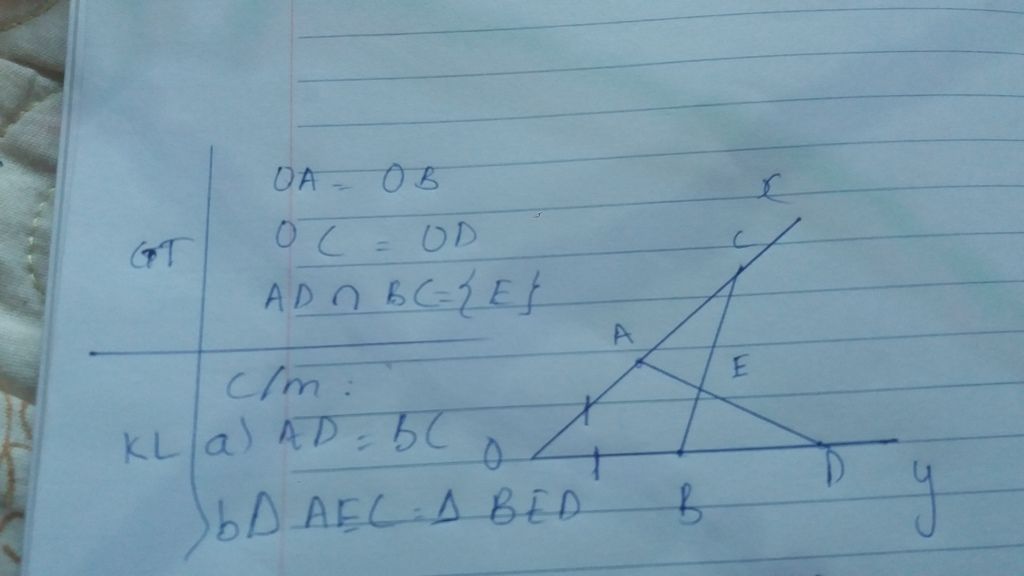 OA = OB
GT
OC = OD
AD ∩ BC = {E}
C/m :
KL
a) AD = BC
b Δ AEC = Δ BED
x
C
A
E
O
B
D
y